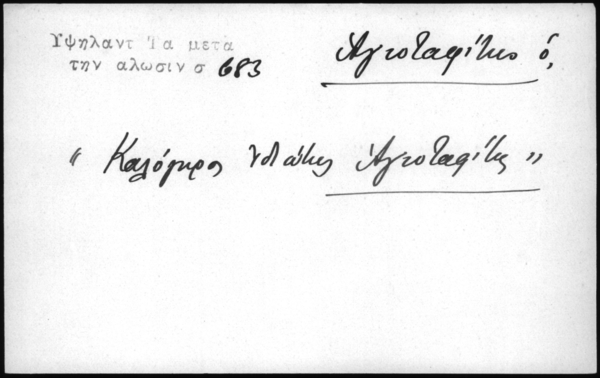 Ὑψηλαντ Τα μετα
την αλωσιν σ 683
Ἁγιοταφίτης ὁ,
"Καλόγηρος Ἁγιοταφίτης"